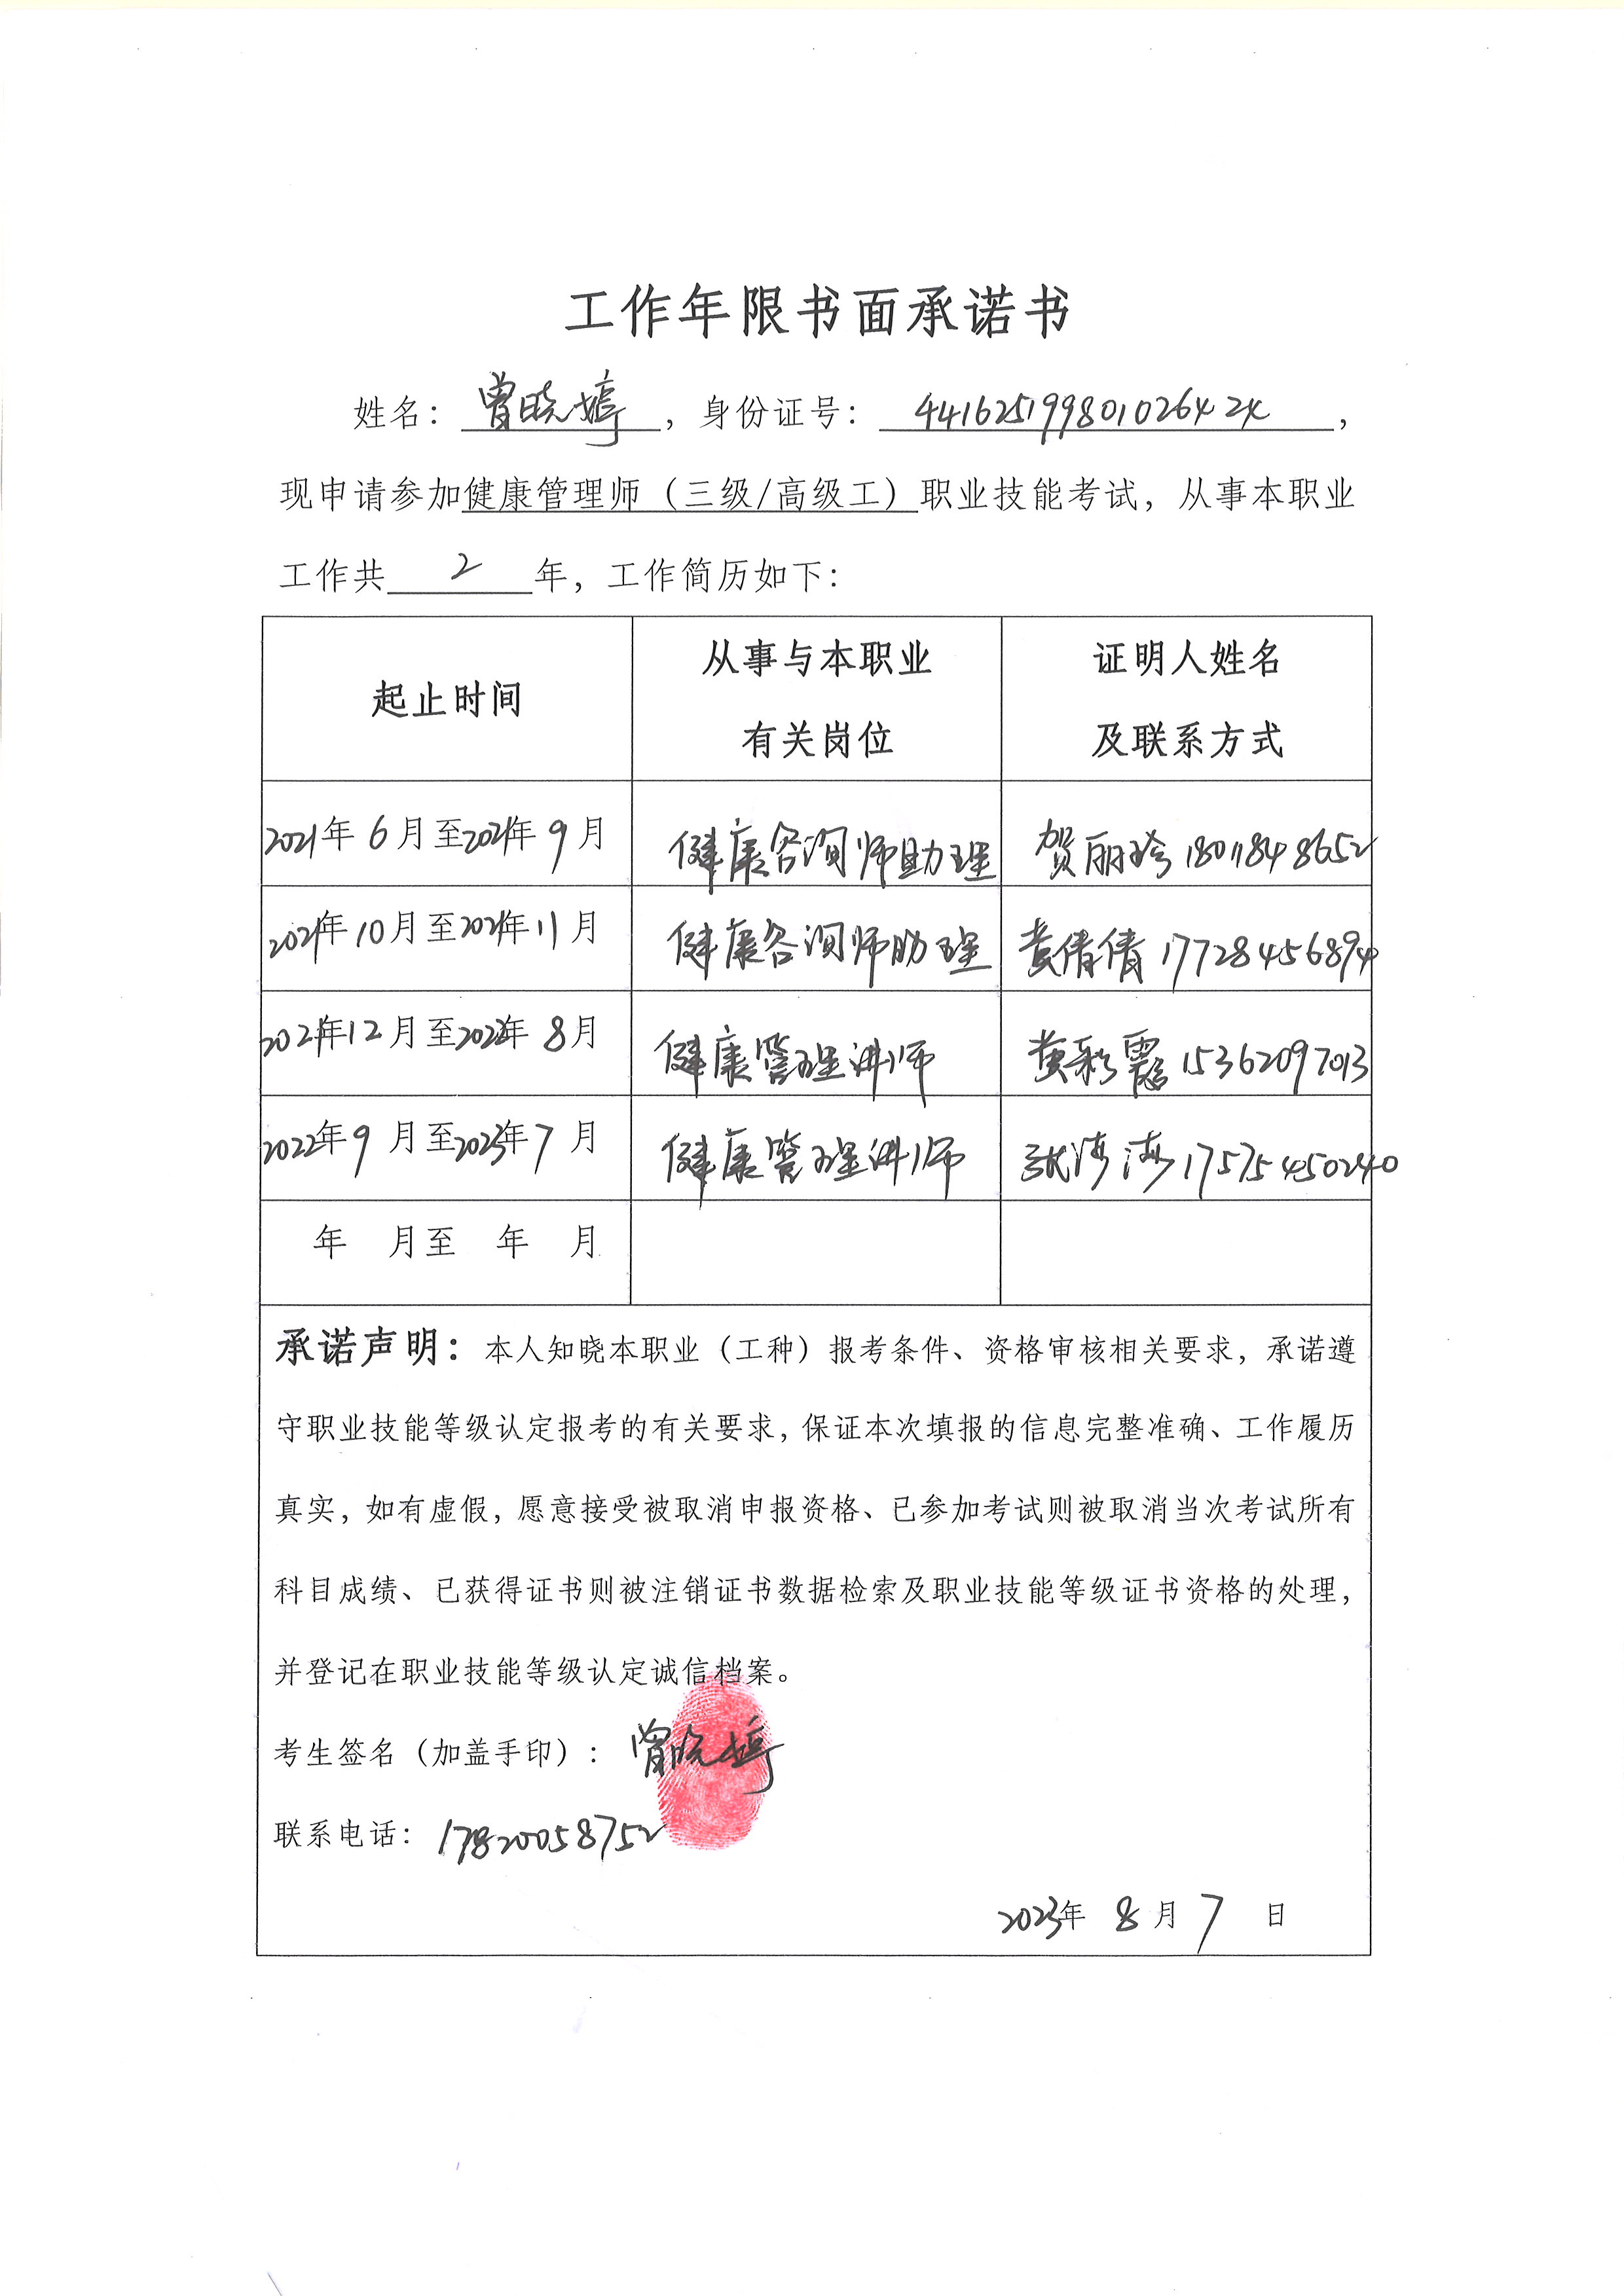 工作年限书面承诺书
姓名：曾晓婷，身份证号：441625199801026424，
现申请参加健康管理师（三级/高级工）职业技能考试，从事本职业
工作共 2 年，工作简历如下：
起止时间
从事与本职业
有关岗位
证明人姓名
及联系方式
2021年 6 月至2021年 9 月 健康咨询师助理 贺丽玲 18011848652
2021年 10 月至2021年 11 月 健康咨询师助理 黄倩倩 17728456894
2021年 12 月至2022年 8 月 健康管理讲师 黄彩霞 15362097013
2022年 9 月至2023年 7 月 健康管理讲师 张涛涛 17575450240
年 月至 年 月
承诺声明：本人知晓本职业（工种）报考条件、资格审核相关要求，承诺遵
守职业技能等级认定报考的有关要求，保证本次填报的信息完整准确、工作履历
真实，如有虚假，愿意接受被取消申报资格、已参加考试则被取消当次考试所有
科目成绩、已获得证书则被注销证书数据检索及职业技能等级证书资格的处理，
并登记在职业技能等级认定诚信档案。
考生签名（加盖手印）：曾晓婷
联系电话：17820058752
2023年 8 月 7 日